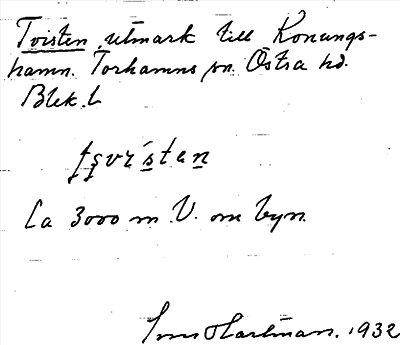 Tvisten, utmark till Konungs-
hamn. Torhamns sn. Östra hd.
Blek. l.
Ca 3000 m. V. om byn.
Hartman. 1932